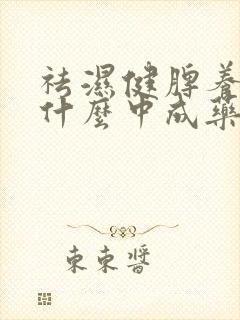 祛濕健脾養
什麼中成藥
東東醬